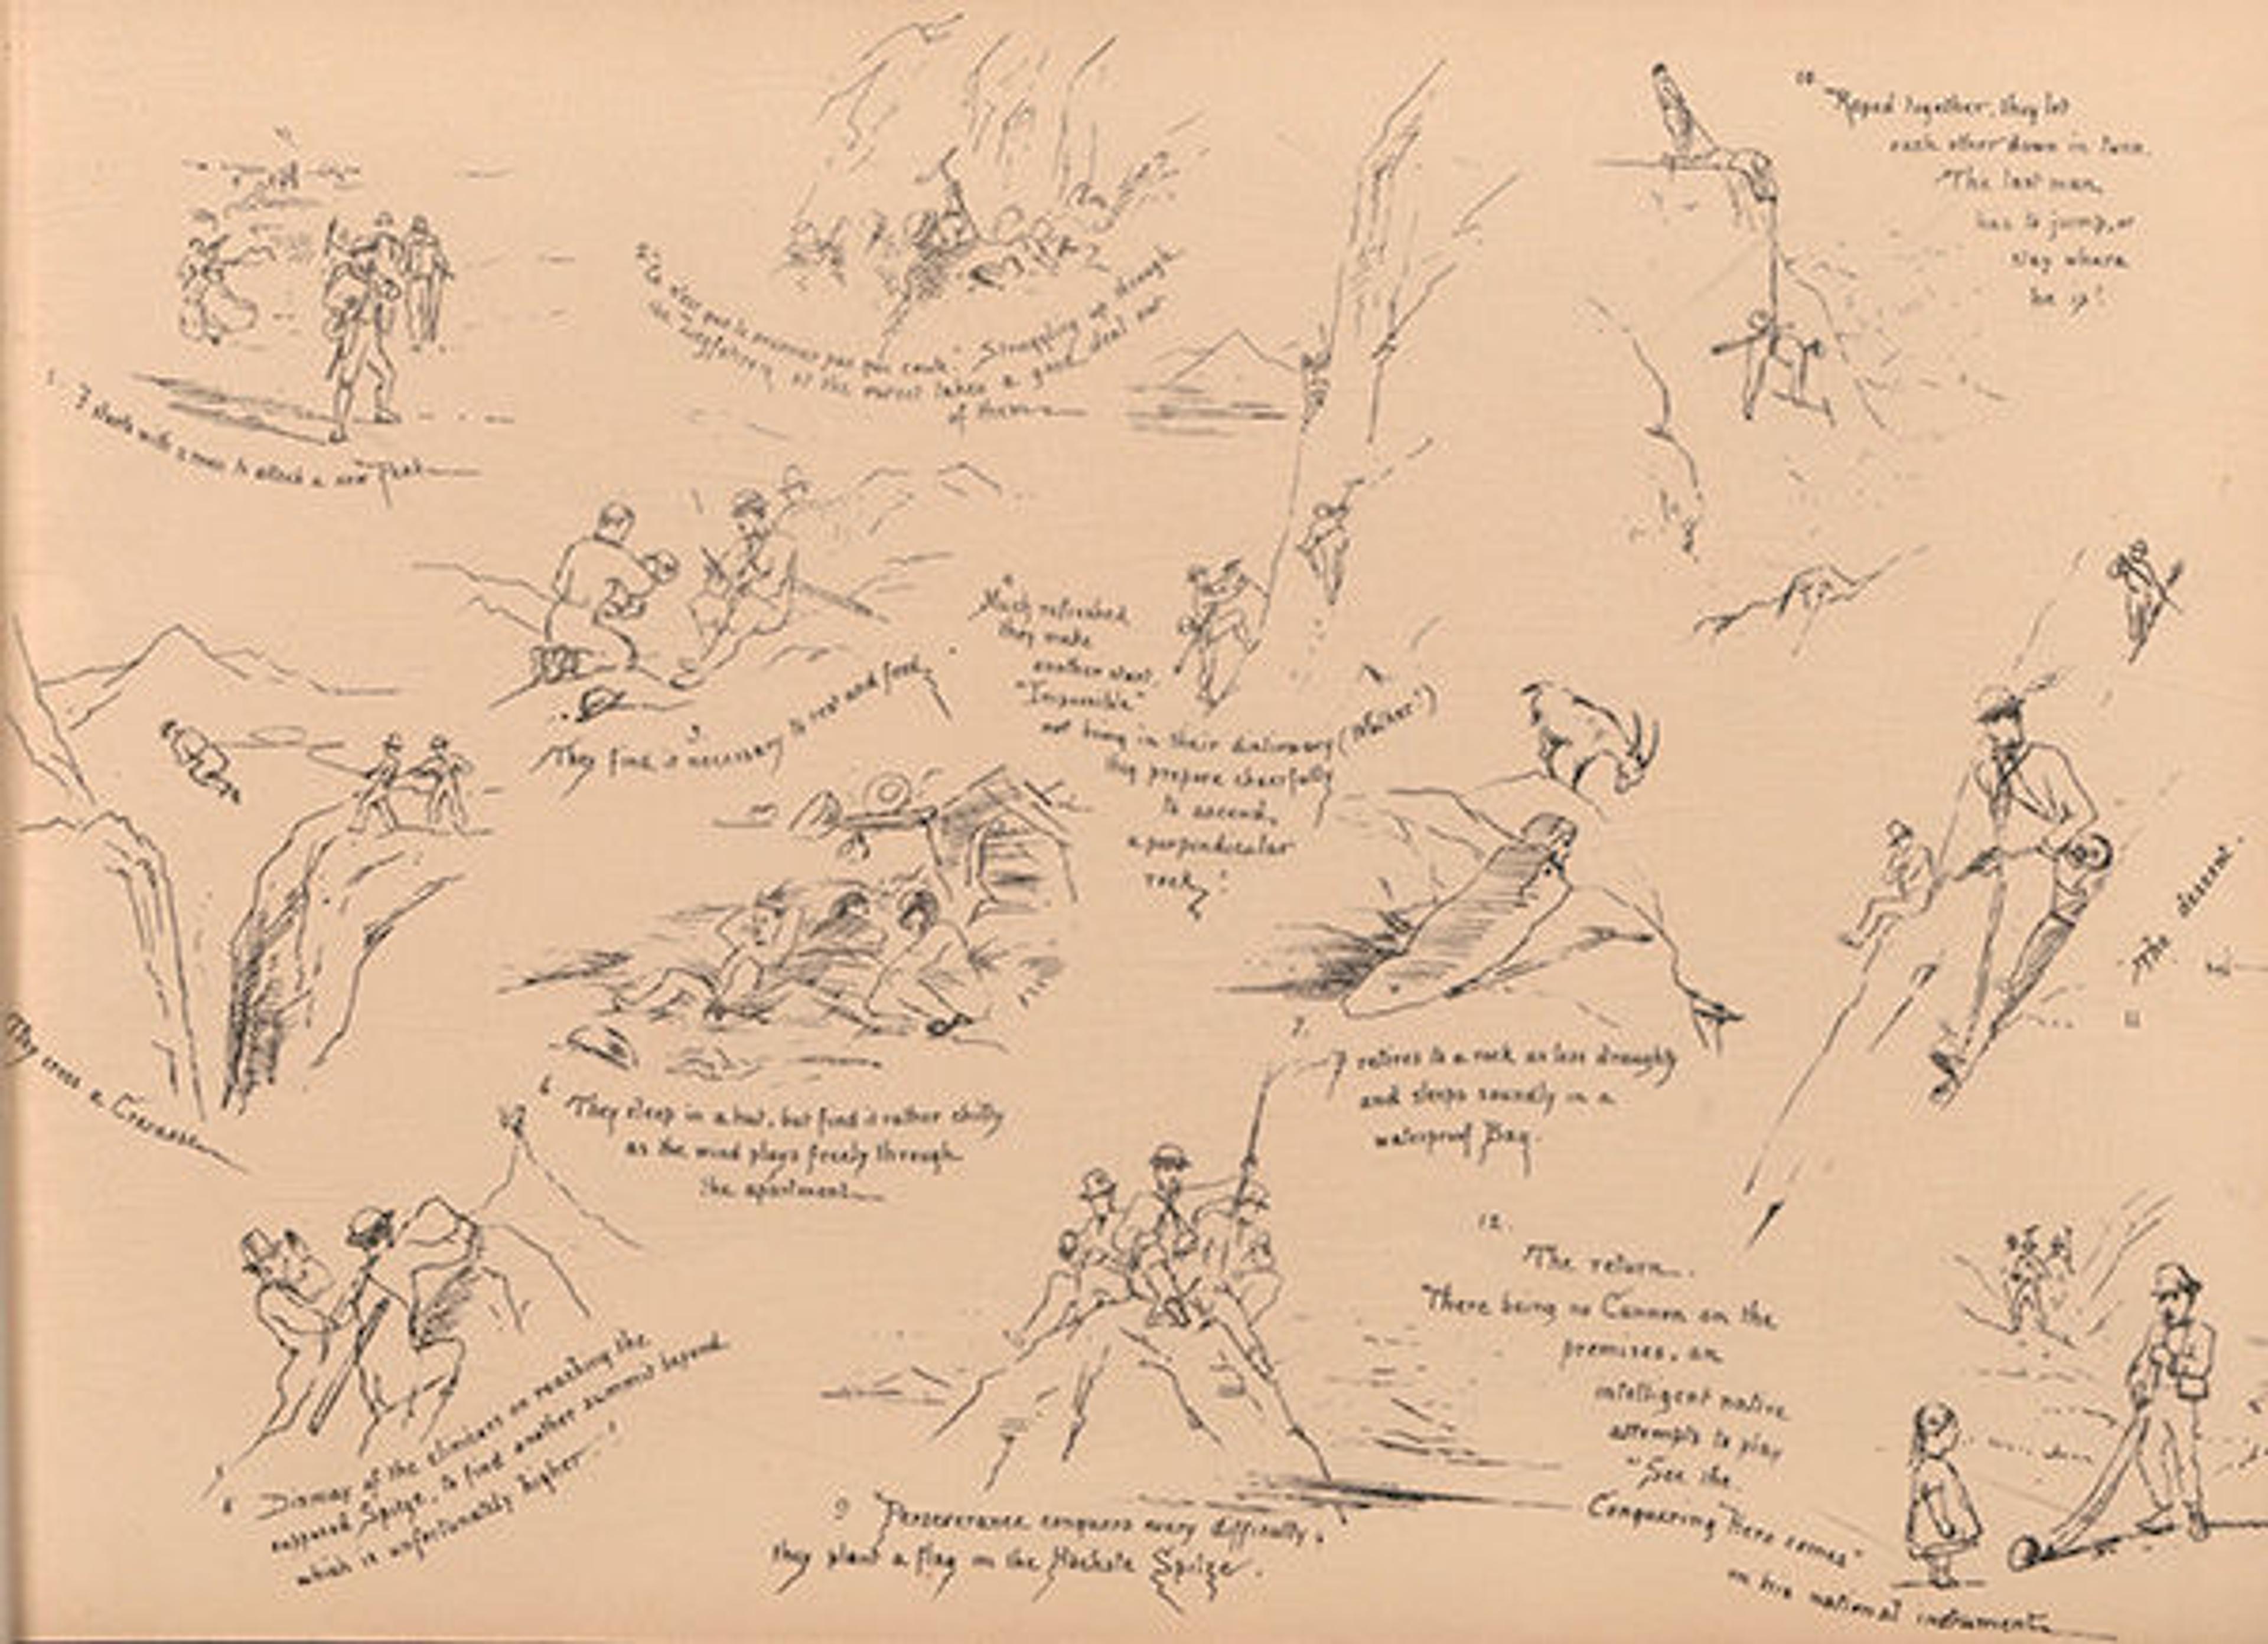 1. F starts with a man to attack a new Peak
2. "Ce n'est que le premier pas qui coute". Struggling up through
the of the forest takes a good deal out
of them
3.
They find it necessary to rest and feed.
4.
Much refreshed
they make
another start.
"Impossible"
not being in their dictionary
they prepare cheerfully
to ascend,
a perpendicular
rock!
They cross a Crevasse
6 They sleep in a hut, but find it rather chilly
as the wind plays freely through
the apartment
7.
F retires to a rock as less draughty
and sleeps soundly in a
waterproof Bag.
8 Dismay of the climbers on reaching the
supposed Spitze, to find another summit beyond
which is unfortunately higher!
9 Perseverance conquers every difficulty,
they plant a flag on the Höchste Spitze.
10. "Roped together, they let
each other down in turn.
The last man,
has to jump, or
stay where
he is!
The descent.
11
12.
The return.
There being no Cannon on the
premises, an
intelligent native
attempts to play
"See the
Conquering Hero comes"
on his national instrument